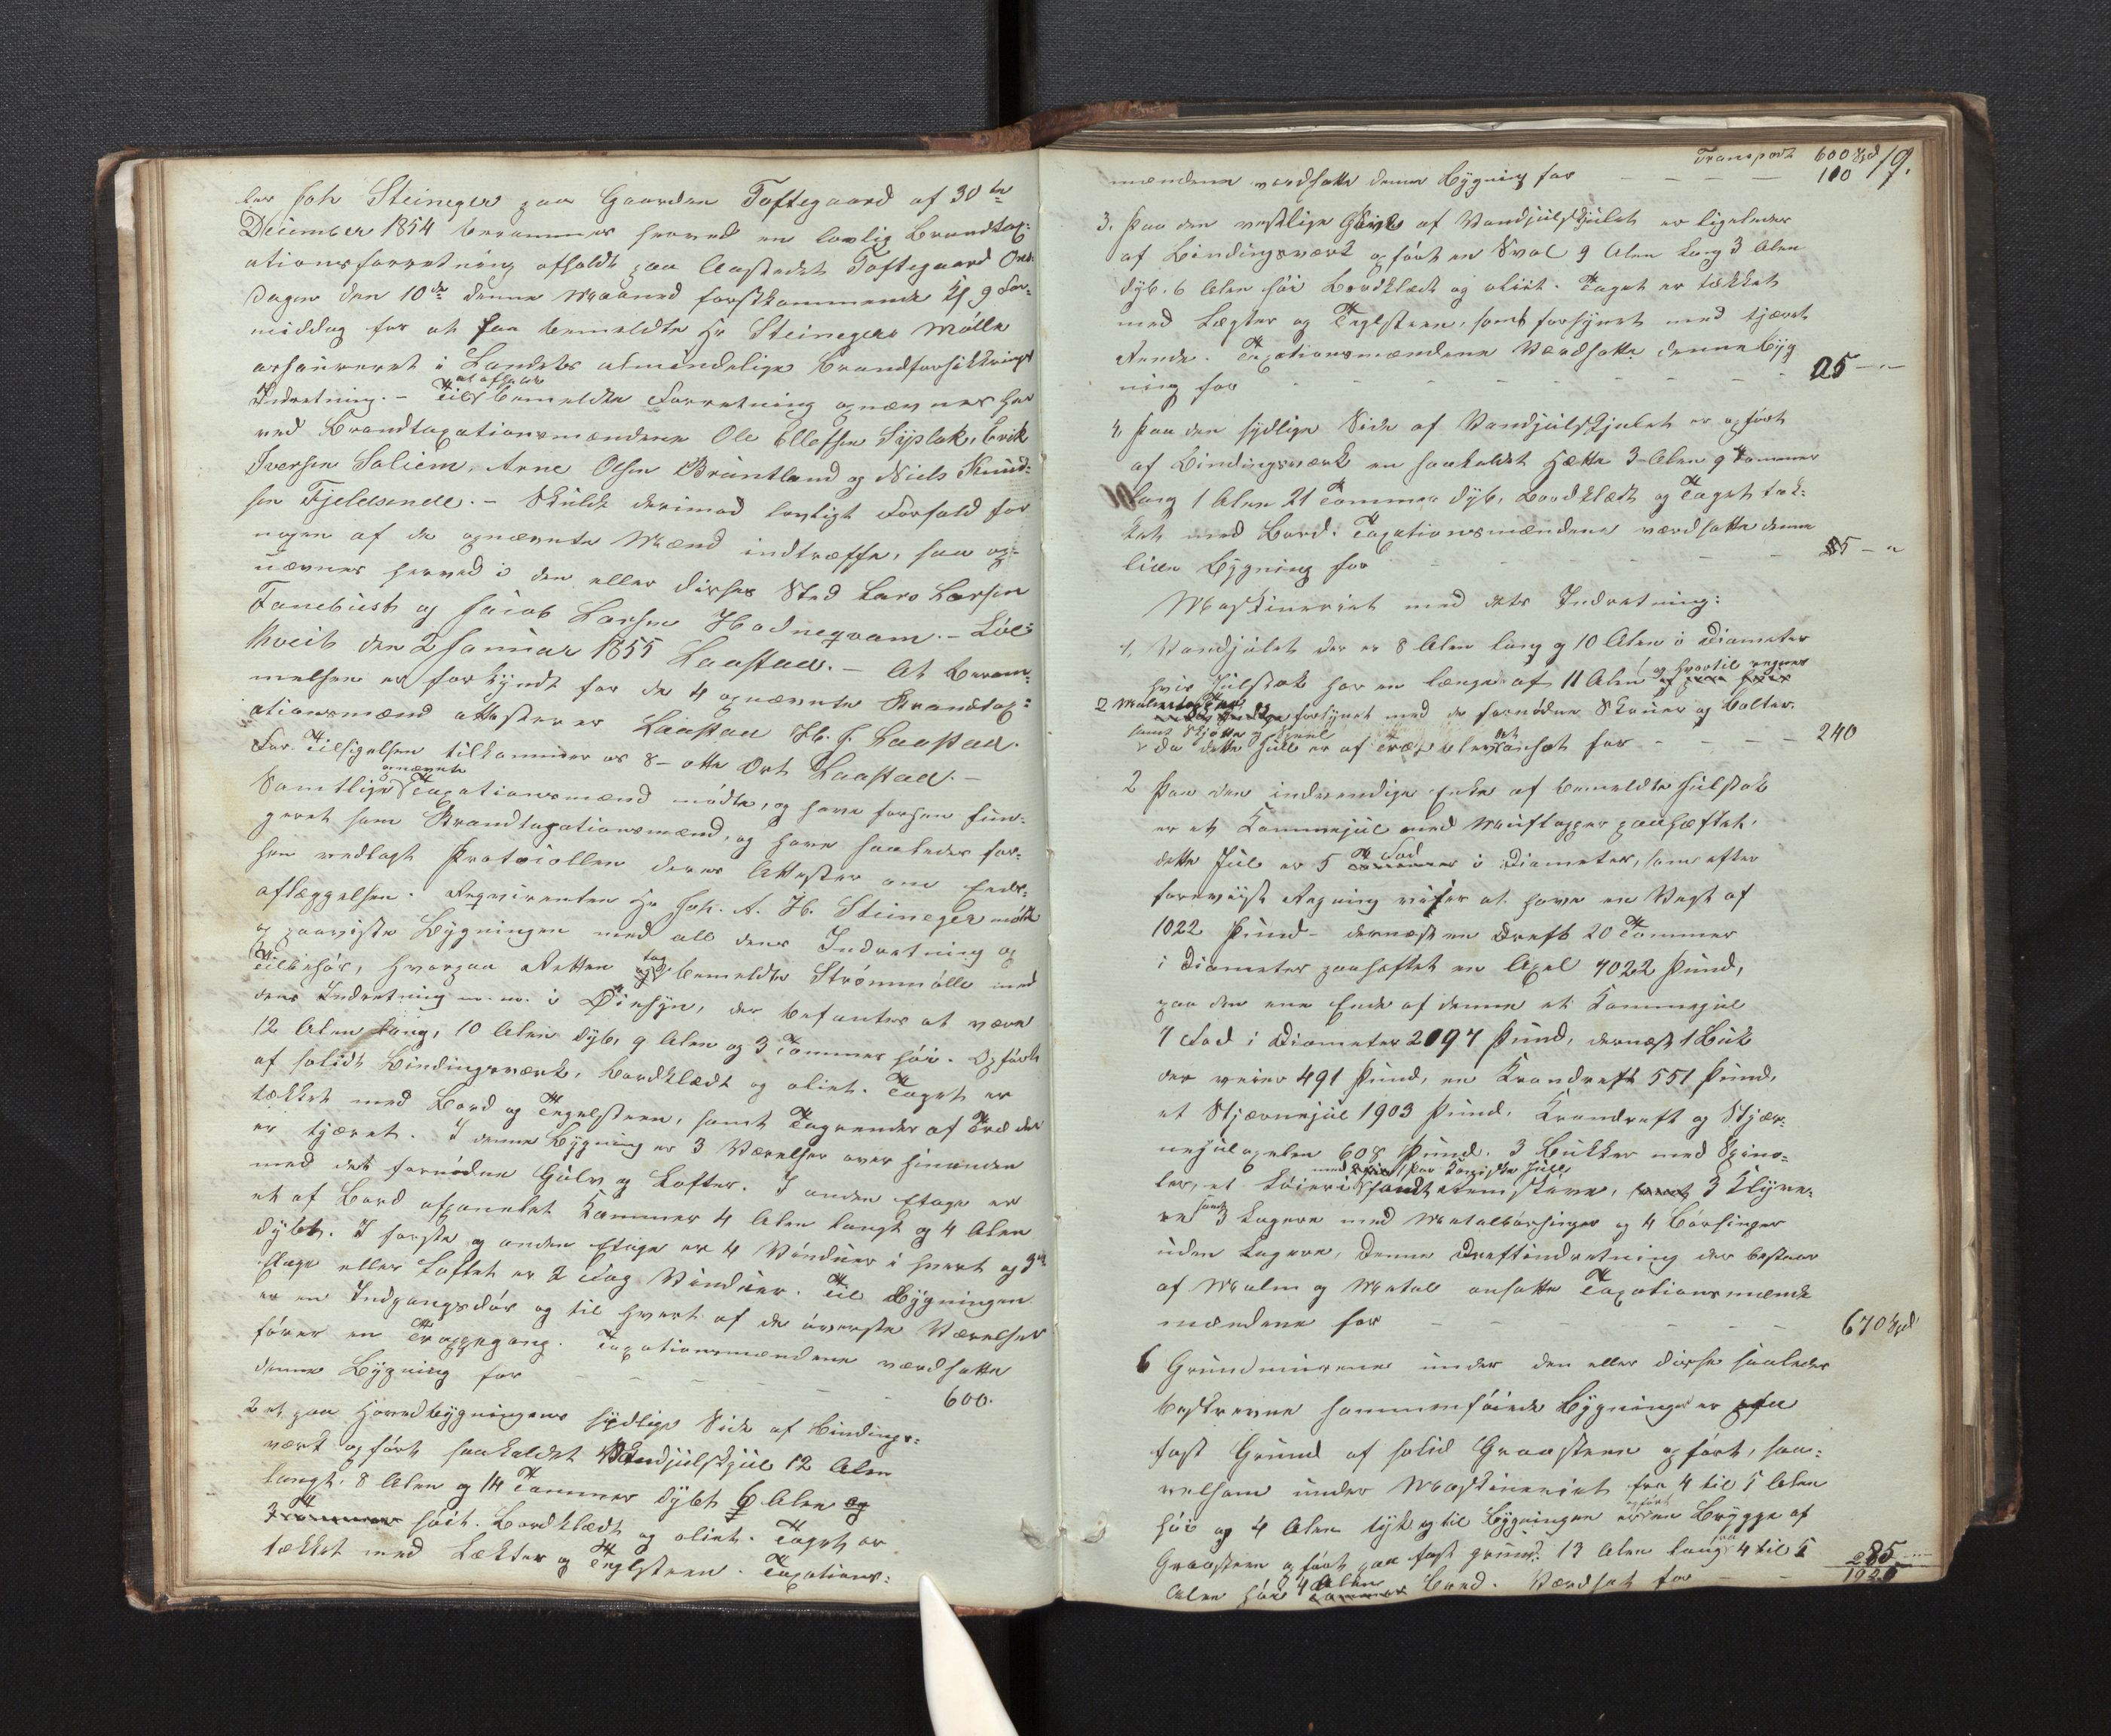 ler Joh Steineger paa Gaarden Toftegaard af 30te
December 1854 berammes herved en lovlig Brandtax=
ationsforretning afholdt paa Aastedet Toftegaard Ons
dagen den 10de denne Maaned førstkommende Kl 9 For=
middag for at faa bemeldte Hr Steinegers Mølle
assureret i Landets almindelige Brandforsikkrings
Indretning. – Til at afholde bemeldte Forretning opnævnes her
ved Brandtaxationsmændene Ole Ellefsen Syslak, Erik
Iversen Soliem, Arne Olsen Bruntland og Niels Knud=
sen Fjeldsende. – Skulde derimod lovligt Forfald for
nogen af de opnævnte Mænd indtræffe, saa op=
nævnes herved i den eller disses Sted Lars Larsen
Fanebust og Jacob Larsen Hodneqvam. – Löt=
kveit den 2 Januar 1855 Laastad. – At beram=
melsen er forkyndt for de 4 opnævnte Brandtax=
ationsmænd attesterer Laastad H. J. Laastad.
For Tilsigelsen tilkommer os 8 – otte Ort Laastad. –
Samtlige opnævnte Taxationsmænd mødte, og have forhen fun=
geret som Brandtaxationsmænd, og have saaledes for=
hen vedlagt Protocollen deres Attester om Eeds=
aflæggelsen. Reqvirenten Hr Joh. A. H. Steineger mødte
og paaviste Bygningen med all dens Indretning og
Tilbehør, hvorpaa Retten tog bemeldte Strømmølle med
dens Indretning m. m. i Øiesyn, der befantes at være
12 Alen lang, 10 Alen dyb, 9 Alen og 3 Tommer høi. Opført
af solidt Bindingsværk, bordklædt og oliet. Taget er
tækket med Bord og Tegelsteen, samt Tagrender af Træ der
er tjæret. I denne Bygning er 3 Værelser over hinanden
med det fornødne Gulv og Lofter. I anden Etage er
et af Bord afpanelet Kammer 4 Alen langt og 4 Alen
dybt. I første og anden Etage er 4 Vinduer i hvert og 3die
Etage eller Loftet er 2 Fag Vinduer. Til Bygningen
er en Indgangsdør og til hvert af de øverste Værelser
fører en Trappegang. Taxationsmændene værdsatte
denne Bygning for – – – – – 600.
2 et paa Hovedbygningens sydlige Side af Bindings=
værk opført saakaldet Vandjulskjul 12 Alen
langt, 8 Alen og 14 Tommer dybt 6 Alen og
3 Tommer høit. Bordklædt og oliet. Taget er
tækket med Lækter og Teglsteen. Taxations=
Transport 600 Spd 19.
mændene værdsatte denne Bygning for – – – – 110
3. Paa den vestlige Gavl af Vandjulskjulet er ligeledes
af Bindingsværk opført en Sval 9 Alen lang 3 Alen
dyb, 6 Alen høi Bordklædt og oliet. Taget er tækket
med Lægter og Teglsteen, samt forsynet med tjæret
Rende. Taxationsmændene Værdsatte denne Byg
ning for – – – – – – – 25 – "
4, Paa den sydlige Side af Vandjulskjulet er opført
af Bindingsværk en saakaldet Hætte 3 Alen 9 Tommer
lang 1 Alen 21 Tommer dyb, Bordklædt og Taget tæk=
ket med Bord. Taxationsmændene værdsatte denne
lille Bygning for – – – – – 5 – "
Maskineriet med dets Indretning:
1, Vandjulet der er 8 Alen lang og 10 Alen i Diameter
hvis Julstok har en længde af 11 Alen og hvortil regnes
2 Malmtapper forsynet med de fornødne Skruer og Bolter,
da dette Juul er af Træ blev det ansat for – – – – 240
2 Paa den indvendige Ende af bemeldte Julstok
er et Kammejul med paahæftet,
dette Jul er 5 Fod i Diameter, som efter
foreviist Regning viser at have en Vægt af
1022 Pund – dernæst en Dreft 20 Tommer
i Diameter paahæftet en Axel 7022 Pund,
paa den ene Ende af denne et Kammejul
7 Fod i Diameter 2097 Pund, dernæst 1 Buk
der veier 491 Pund, en Krandreft 551 Pund,
et Stjærnejul 1903 Pund. Krandreft og Stjær=
nejulaxelen 608 Pund. 3 Bukker med Spind=
ler, et med 1 Par Koniske Juul samt Remskive, 3 Klyve=
re samt 3 Lagere med Metalbøsninger og 4 Bøsninger
uden Lagere, Denne Dreftindretning der bestaar
af Malm og Metal ansatte Taxationsmænde
mændene for – – – – – – 670 Spd
6 Grundmurene under den eller disse saaledes
beskrevne sammenføiede Bygninger er paa
fast Grund af solid Graasteen opført, saa=
velsom under Maskineriet fra 4 til 5 Alen
høi og 4 Alen tyk og til Bygningen er opført en Brygge af
Graasteen opført paa fast grund. 13 Alen lang fra 4 til 5
Alen høi 4 Alen Bred. Værdsat for – – 285 – "
1925